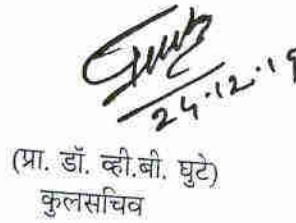 24.12.19
(प्रा. डॉ. व्ही.बी. घुटे)
कुलसचिव